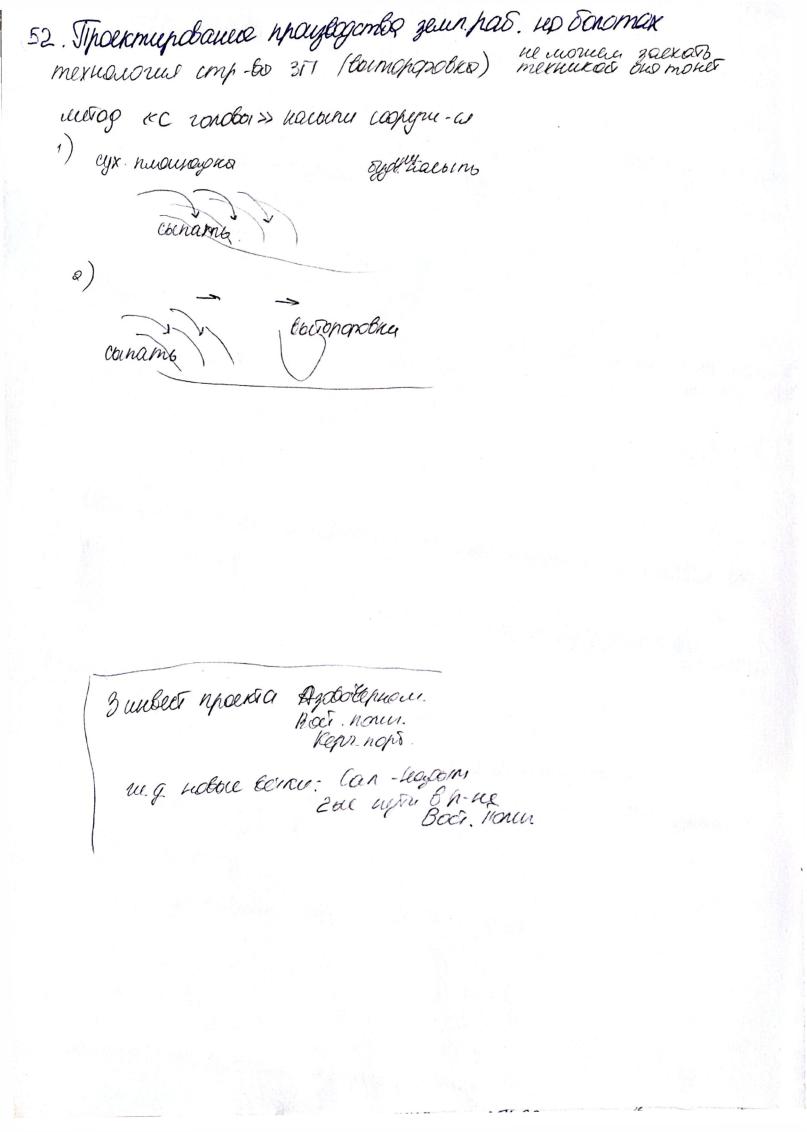 52. Проектирование производства земл. раб. на болотах
технология стр-во ЗП (выторфовка)
не можем заехать
техникой она тонет
метод «С головы» насыпи сооруж-ся
1)
сух. площадка
насыпь
сыпать
2)
выторфовка
сыпать
3 инвест проекта Азовочерном.
Вост. полиг.
Керч. порт.
ж.д. новые ветки: Сал -
2ые пути в р-не
Вост. полиг